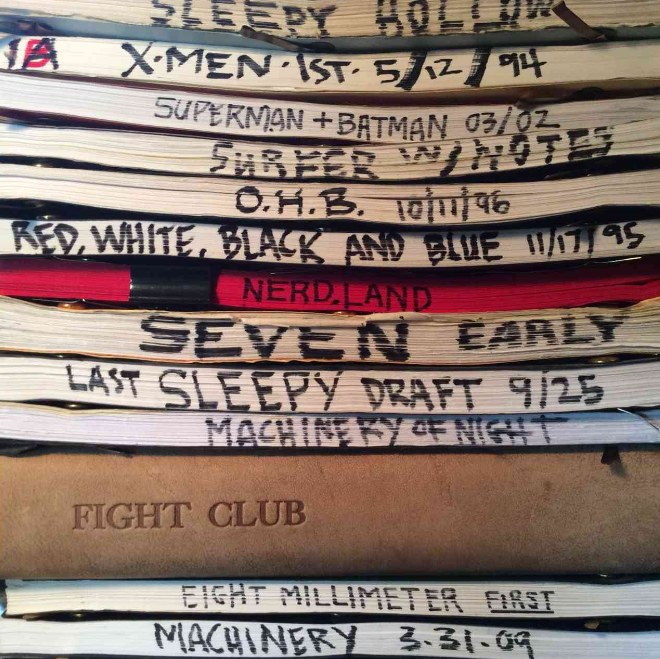 SLEEPY HOLLOW
X-MEN · 1ST · 5/12/94
SUPERMAN + BATMAN 03/02
SURFER W/NOTES
O.H.B. 10/11/96
RED, WHITE, BLACK AND BLUE 11/17/95
NERD.LAND
SEVEN EARLY
LAST SLEEPY DRAFT 9/25
MACHINERY OF NIGHT
FIGHT CLUB
EIGHT MILLIMETER FIRST
MACHINERY 3-31-09